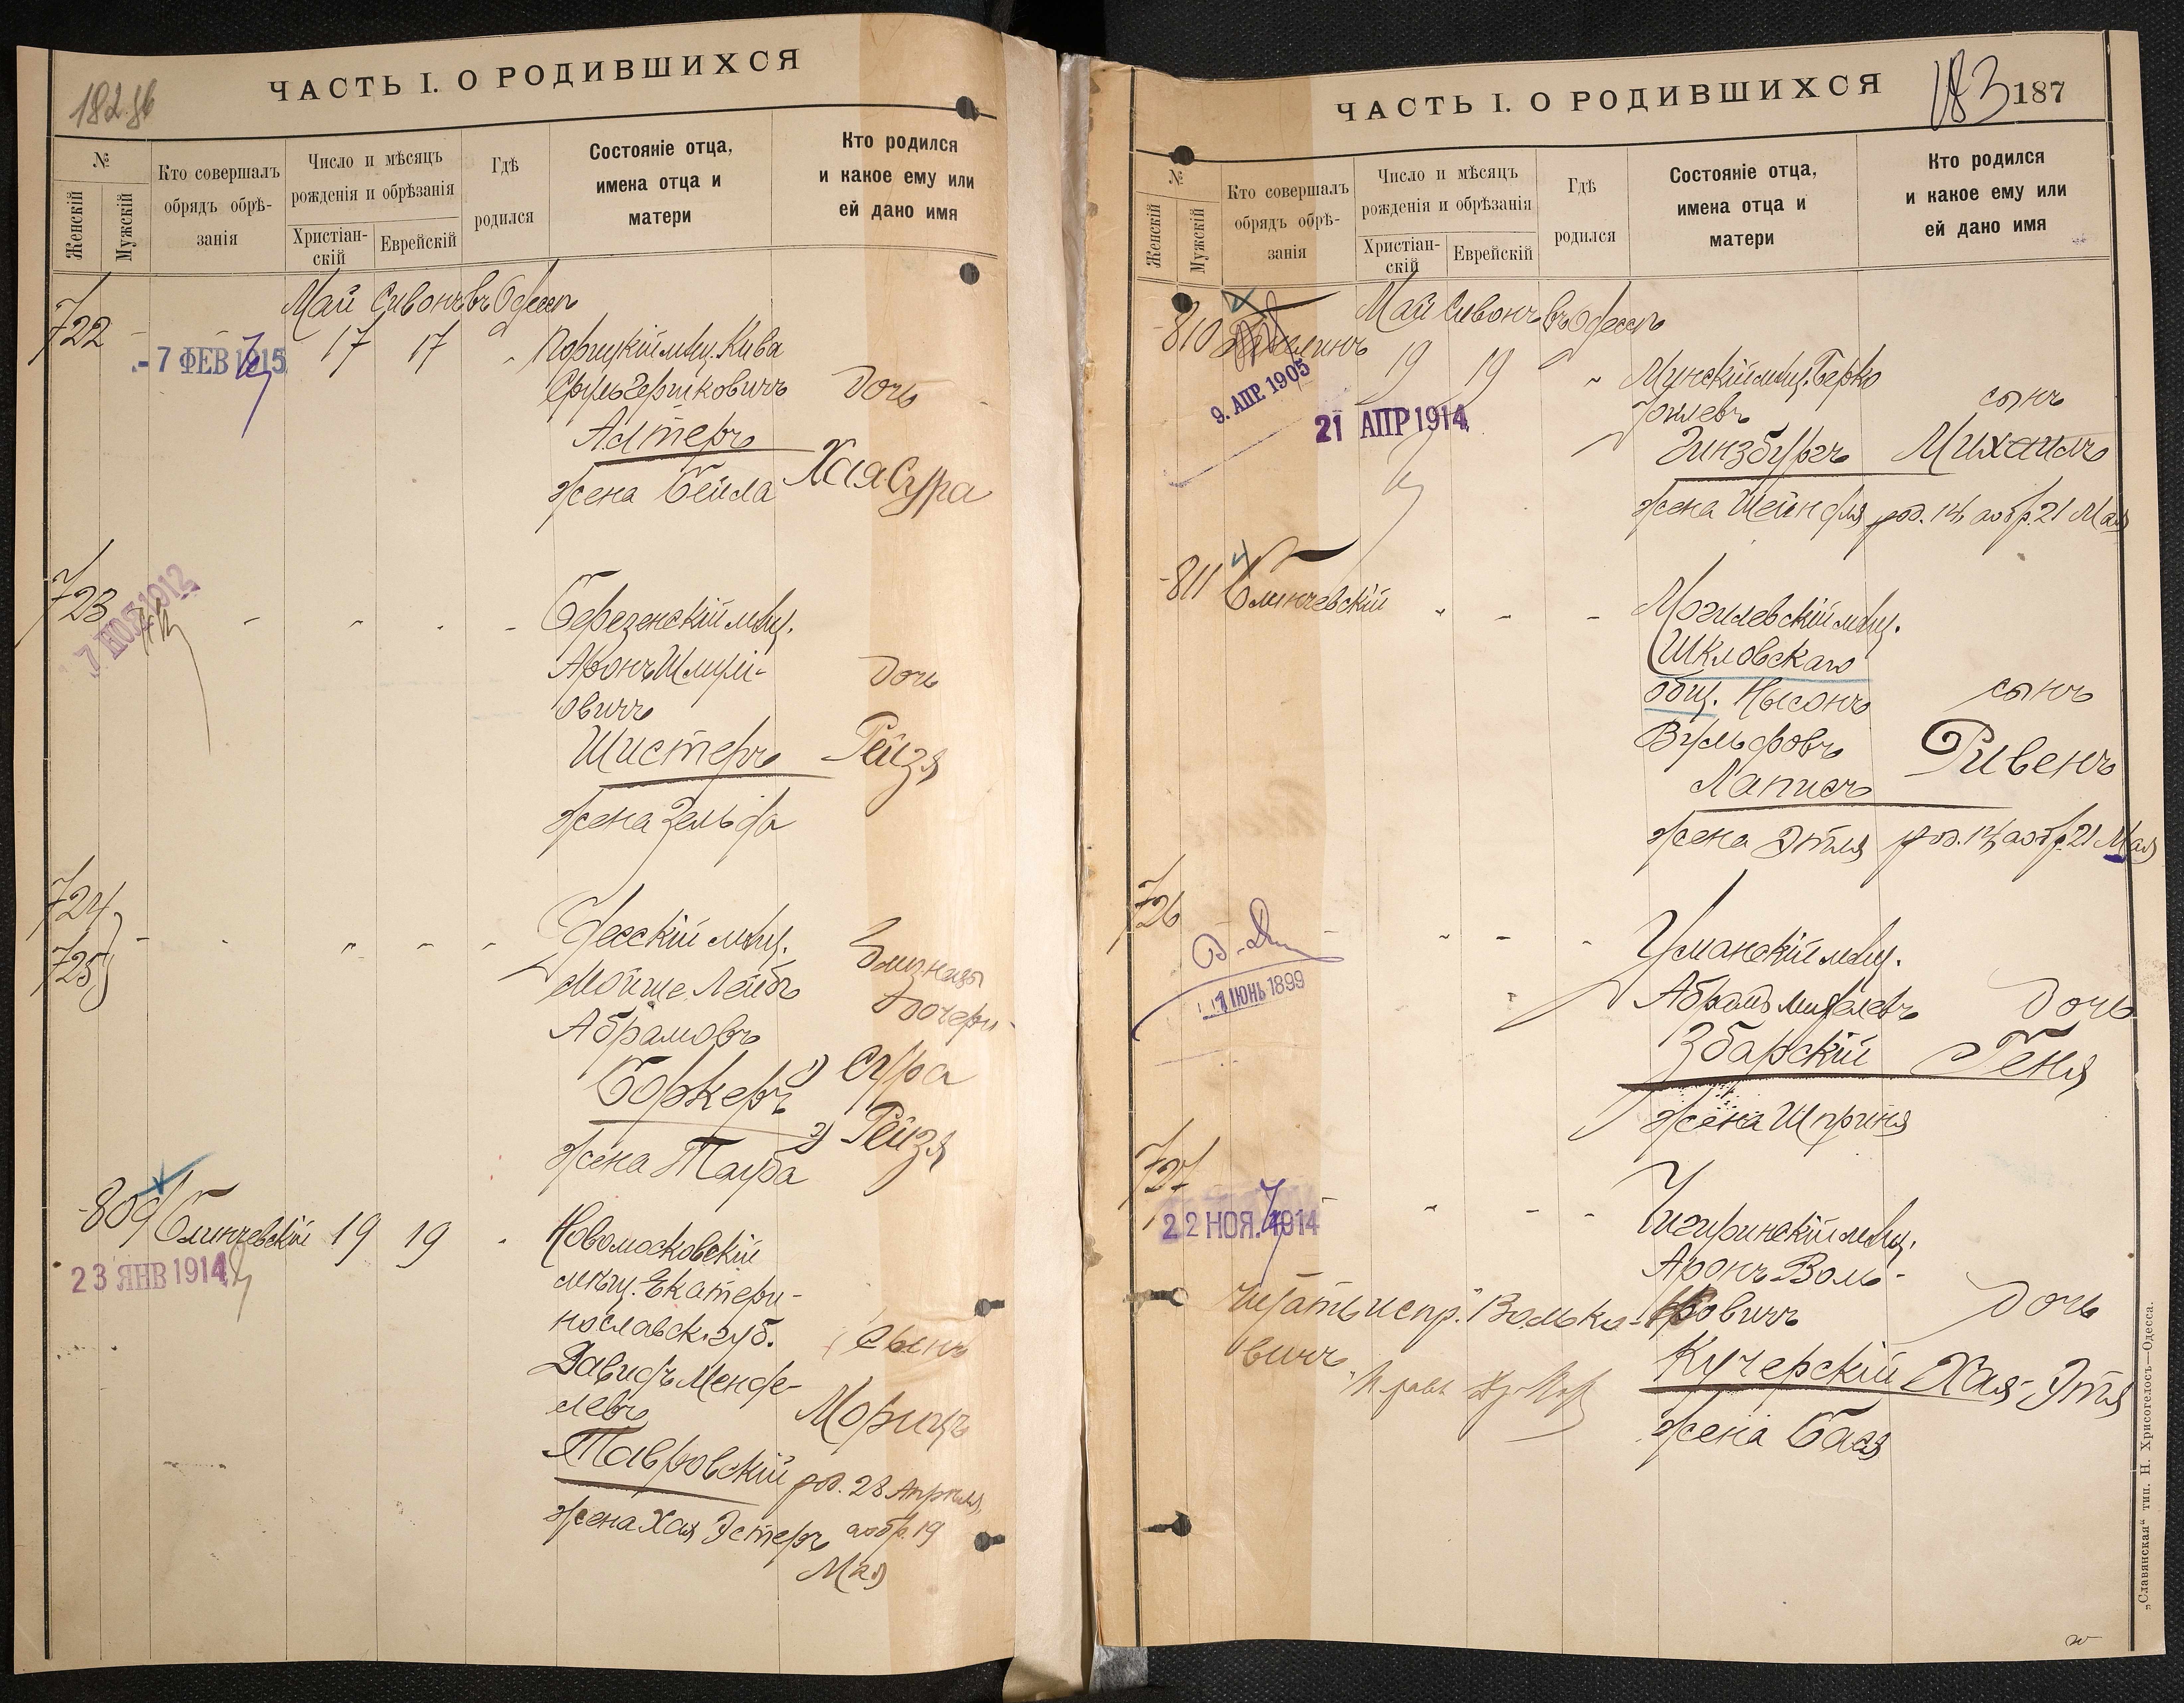 182 об
ЧАСТЬ I. О РОДИВШИХСЯ
№
Женскій
Мужскій
Кто совершалъ
обрядъ обрѣ-
занія
Число и мѣсяцъ
рожденія и обрѣзанія
Христіан-
скій
Еврейскій
Гдѣ
родился
Состояніе отца,
имена отца и
матери
Кто родился
и какое ему или
ей дано имя
Май Сивонъ въ Одессѣ
722
- 7 ФЕВ 1915
17 17
Порицкій мѣщ. Кива
Сруль Гершковичъ
Дочь
Астеръ
жена Бейла
Хая Сура
723
7 НОЯ 1912
Березенскій мѣщ.
Аронъ Шмуль-
овичъ
Дочь
Шистеръ
Рейзя
жена Зельда
724
725
Одесскій мѣщ.
Мойше Лейбъ
Абрамовъ
Близнецы
дочери
Боркеръ
1) Сура
2) Рейзя
жена Тауба
809
Блинчевскій 19 19
23 ЯНВ 1914
Новомосковскій
мѣщ. Екатери-
нославск. губ.
Сынъ
Давидъ Менде-
левъ
Морицъ
Тавровскій
род. 28 Апрѣля,
жена Хая Эстеръ
а обр. 19
Мая
ЧАСТЬ I. О РОДИВШИХСЯ
183
187
№
Женскій
Мужскій
Кто совершалъ
обрядъ обрѣ-
занія
Число и мѣсяцъ
рожденія и обрѣзанія
Христіан-
скій
Еврейскій
Гдѣ
родился
Состояніе отца,
имена отца и
матери
Кто родился
и какое ему или
ей дано имя
Май Сивонъ въ Одессѣ
810
19 19
9. АПР. 1905
21 АПР 1914
Минскій мѣщ. Берко
сынъ
Гинзбургъ
Михаилъ
жена Шейндля
род. 14, а обр. 21 Мая
811
Блинчевскій
Могилевскій мѣщ.
Шкловскаго
общ. Нысонъ
сынъ
Вульфовъ
Рувенъ
Лаписъ
жена Этля
род. 14, а обр. 21 Мая
726
1 ІЮНЬ 1899
Уманскій мѣщ.
Абрамъ
Дочь
Збарскій
Геня
жена Шприня
727
22 НОЯ. 1914
Чигиринскій мѣщ.
Аронъ Воль-
ковичъ
Дочь
Читать испр. "Волько-
вичъ"
Кучерскій
Хая-Этя
жена Бася
„Славянская“ тип. Н. Хрисогелосъ—Одесса.